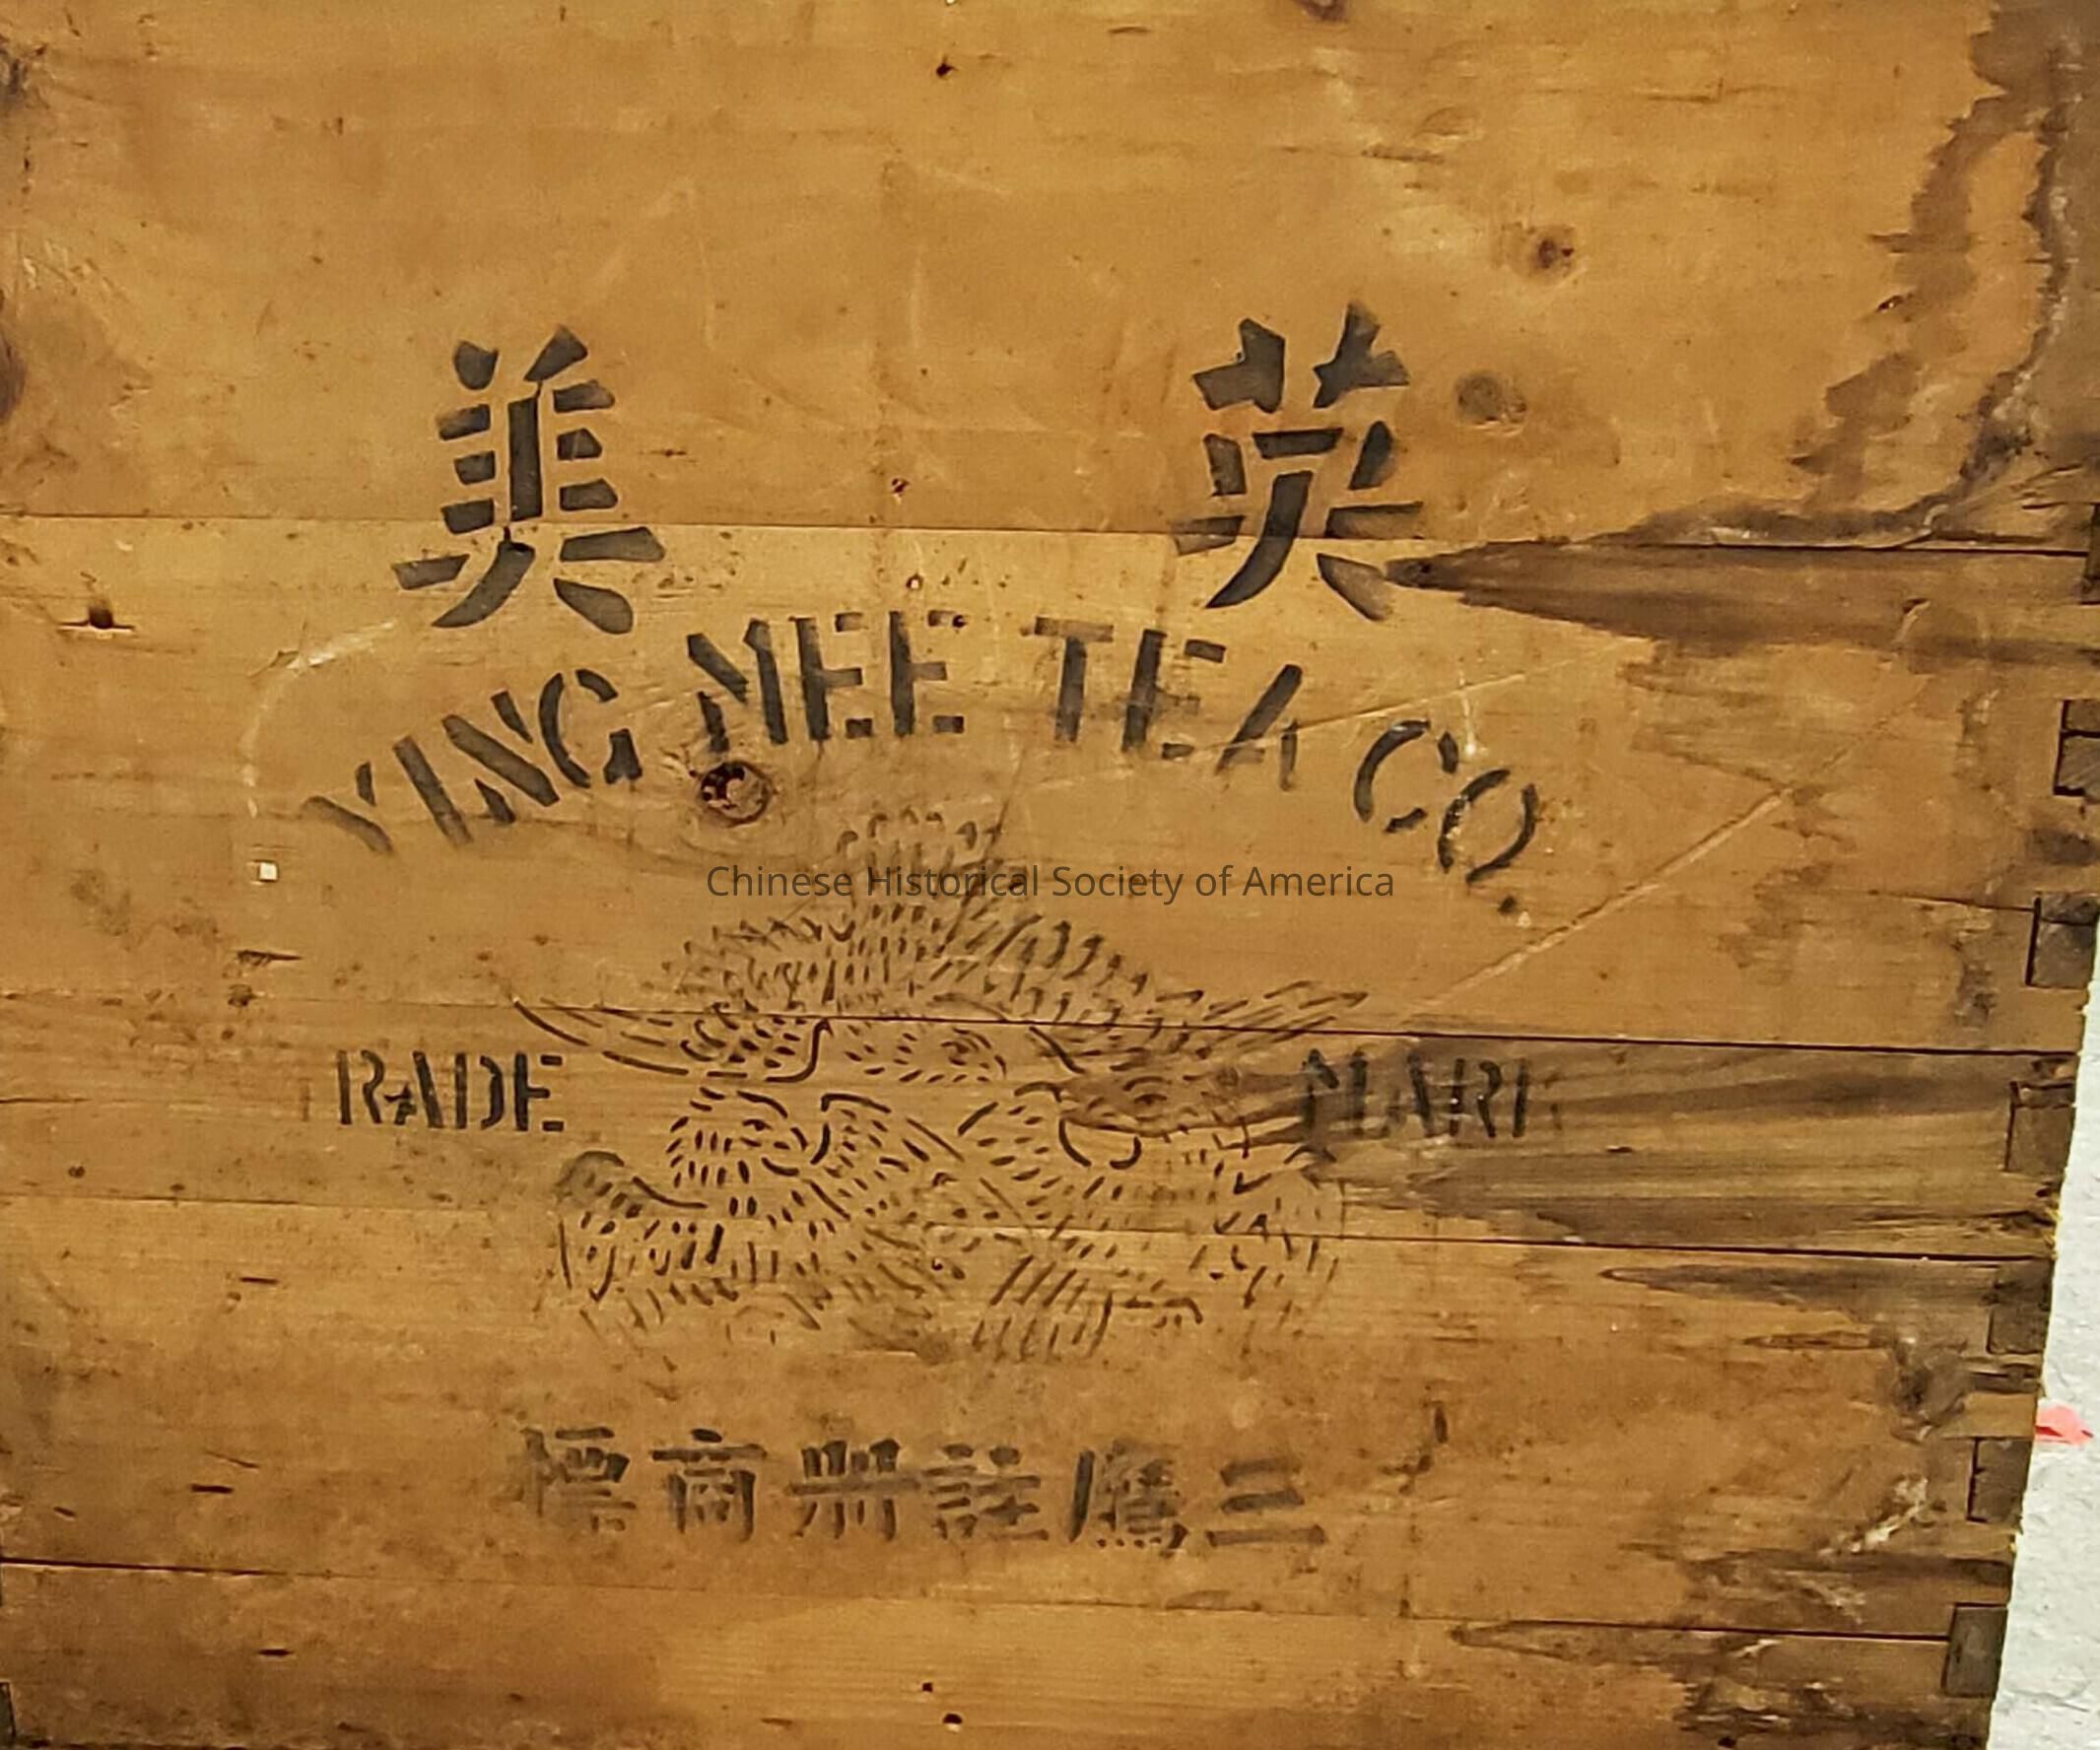 英美
YING MEE TEA CO.
Chinese Historical Society of America
RADE MARK
三鷹註册商標